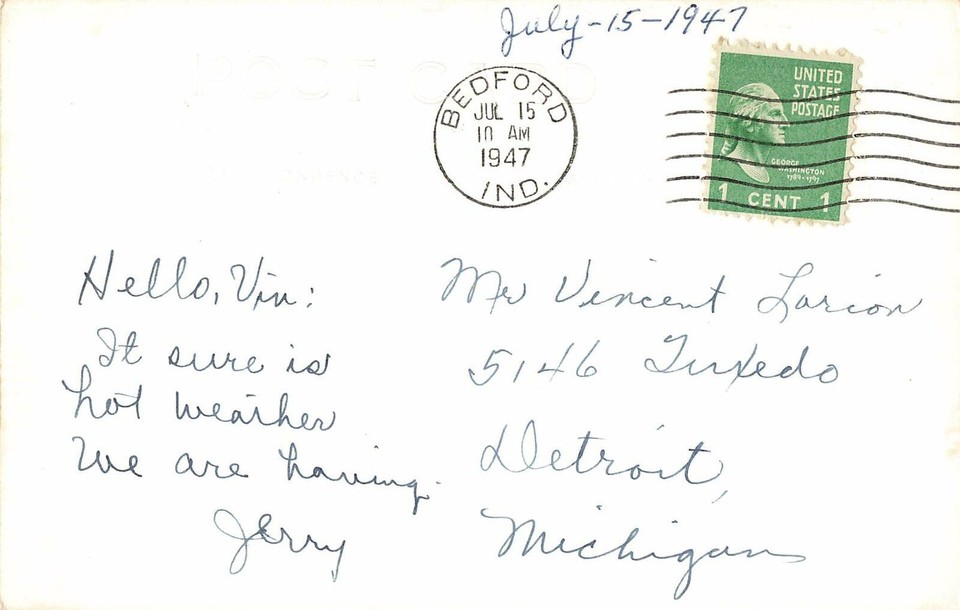 July-15-1947
POST CARD
BEDFORD
JUL 15
10 AM
1947
IND.
UNITED
STATES
POSTAGE
GEORGE
WASHINGTON
1789-1797
1 CENT 1
Hello, Vin:
It sure is
hot weather
We are having.
Jerry
Mr Vincent Larion
5146 Tuxedo
Detroit,
Michigan